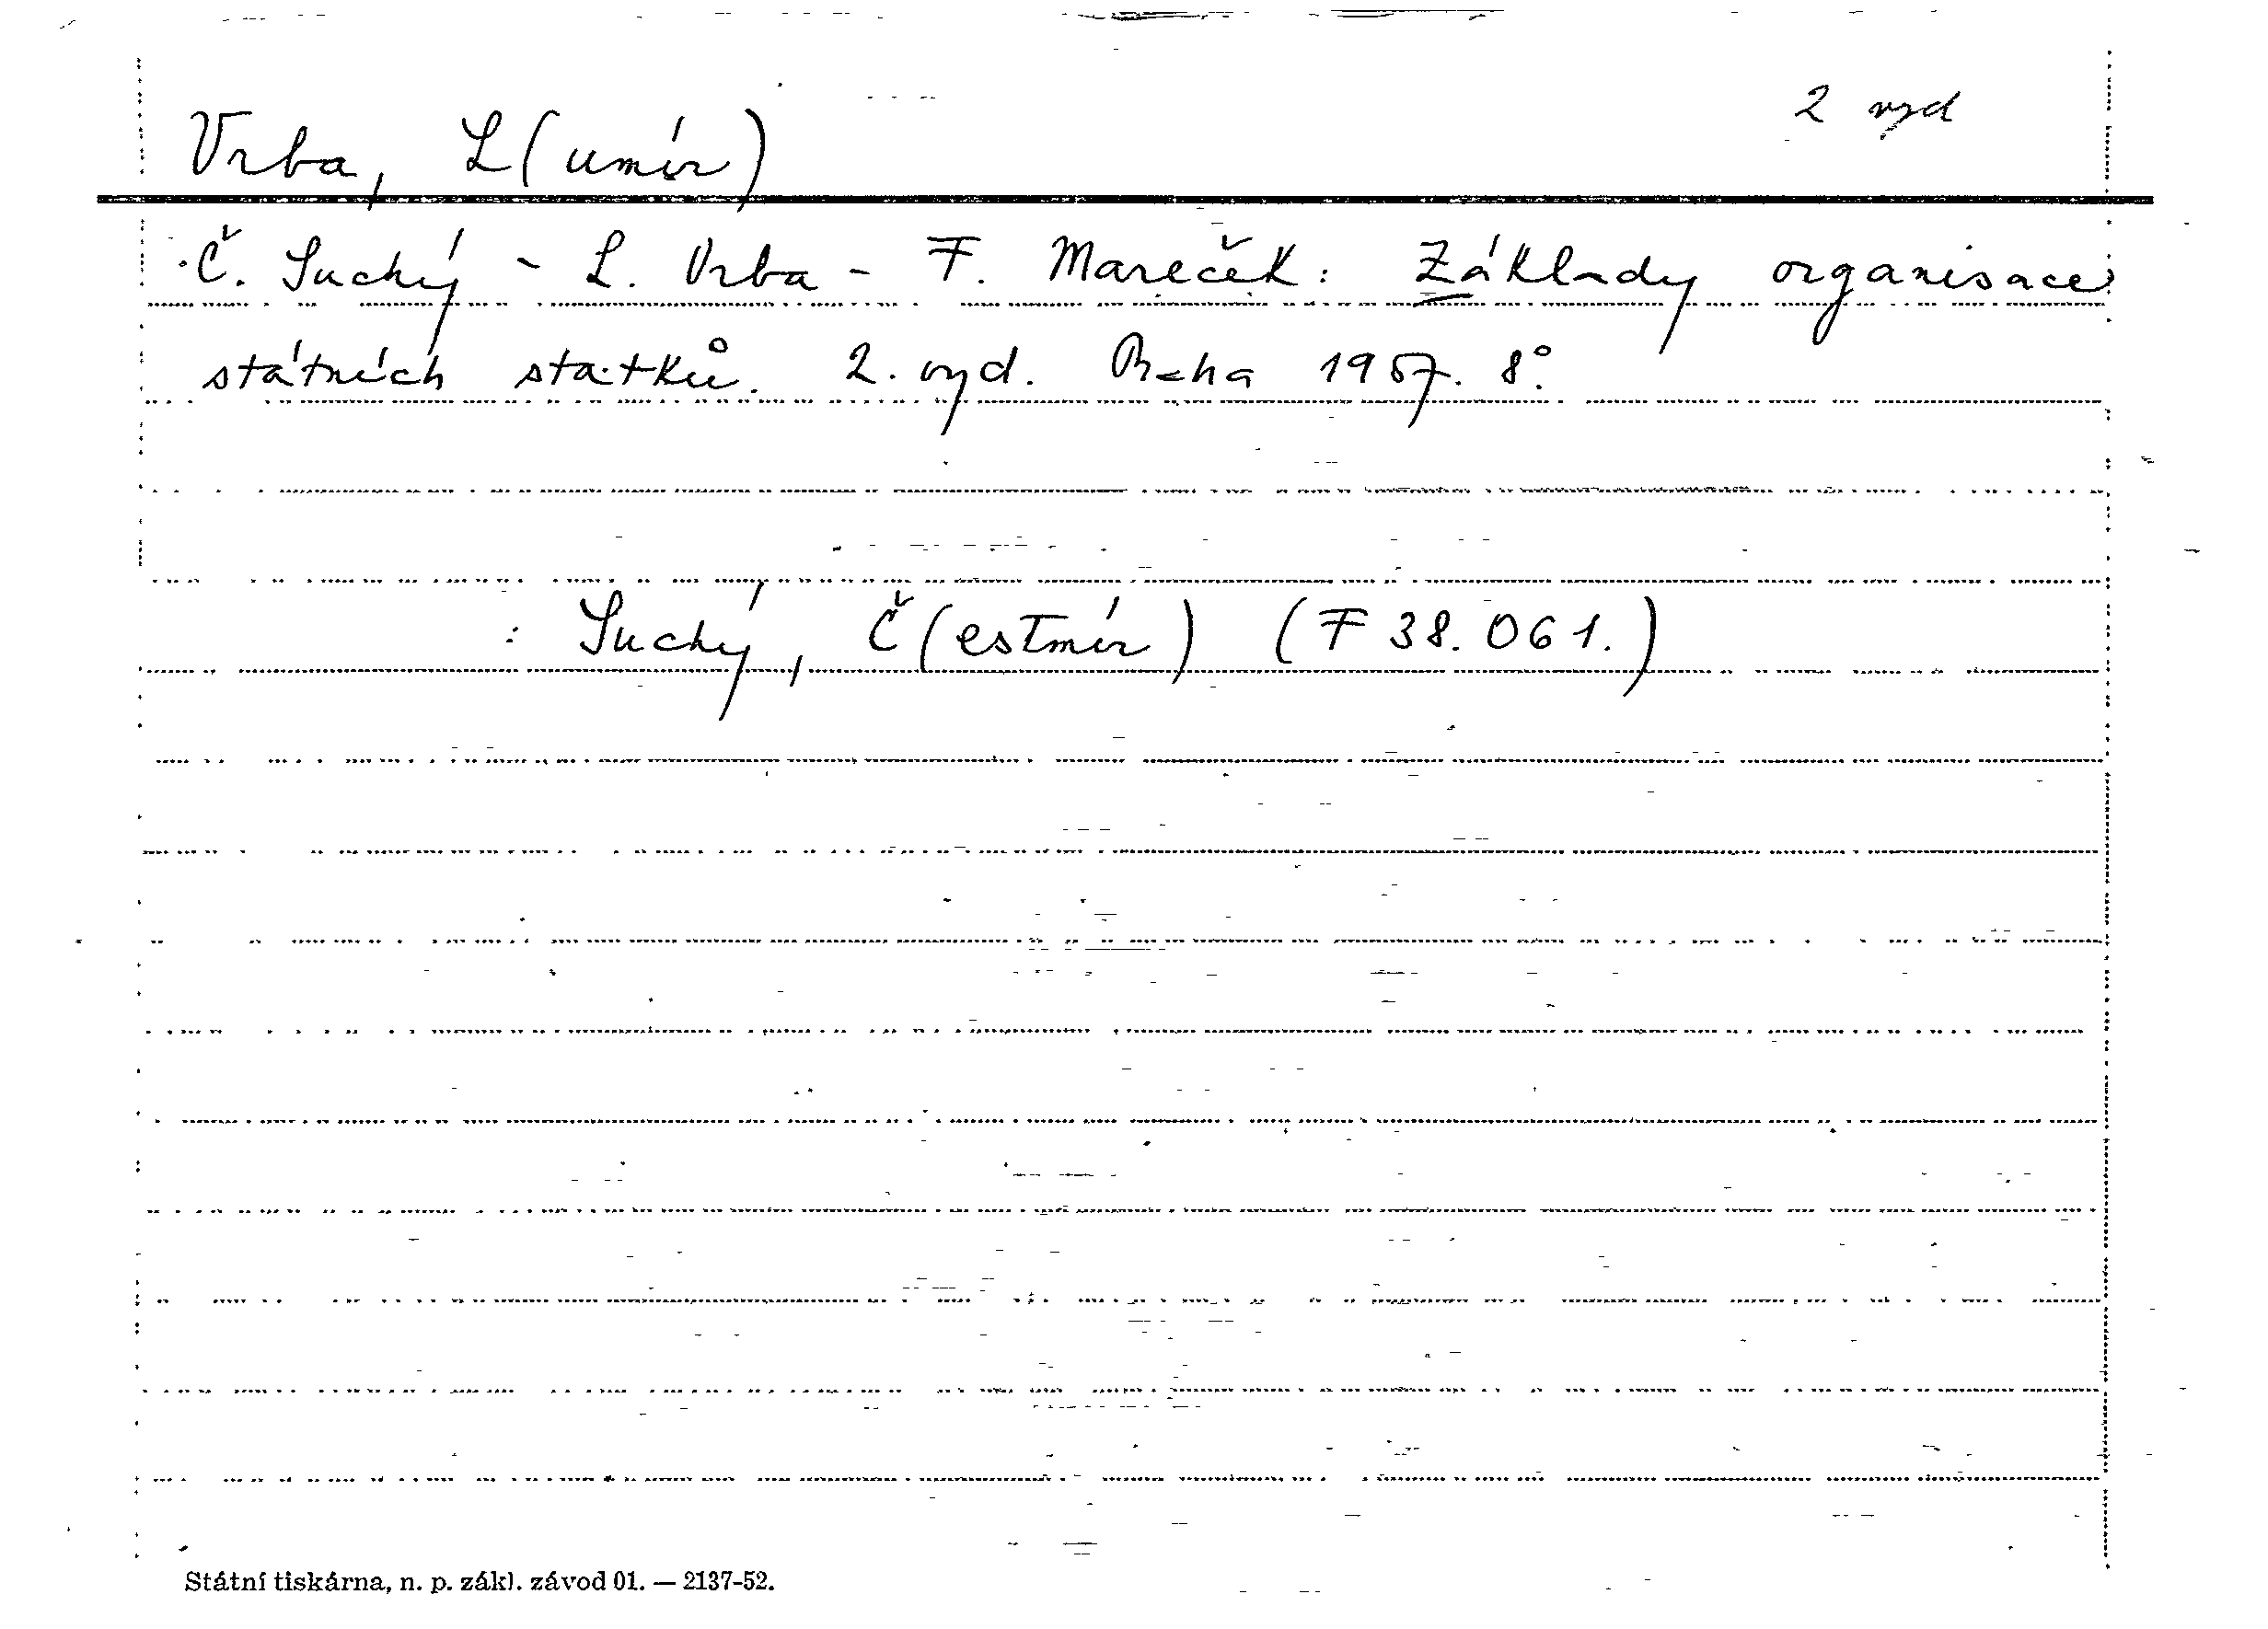 2 vyd
Vrba, L(umír)
Č. Suchý - L. Vrba - F. Mareček: Základy organisace
státních statků. 2. vyd. Praha 1957. 8°.
: Suchý, Č(estmír) (F 38.061.)
Státní tiskárna, n. p. zákl. závod 01. — 2137-52.